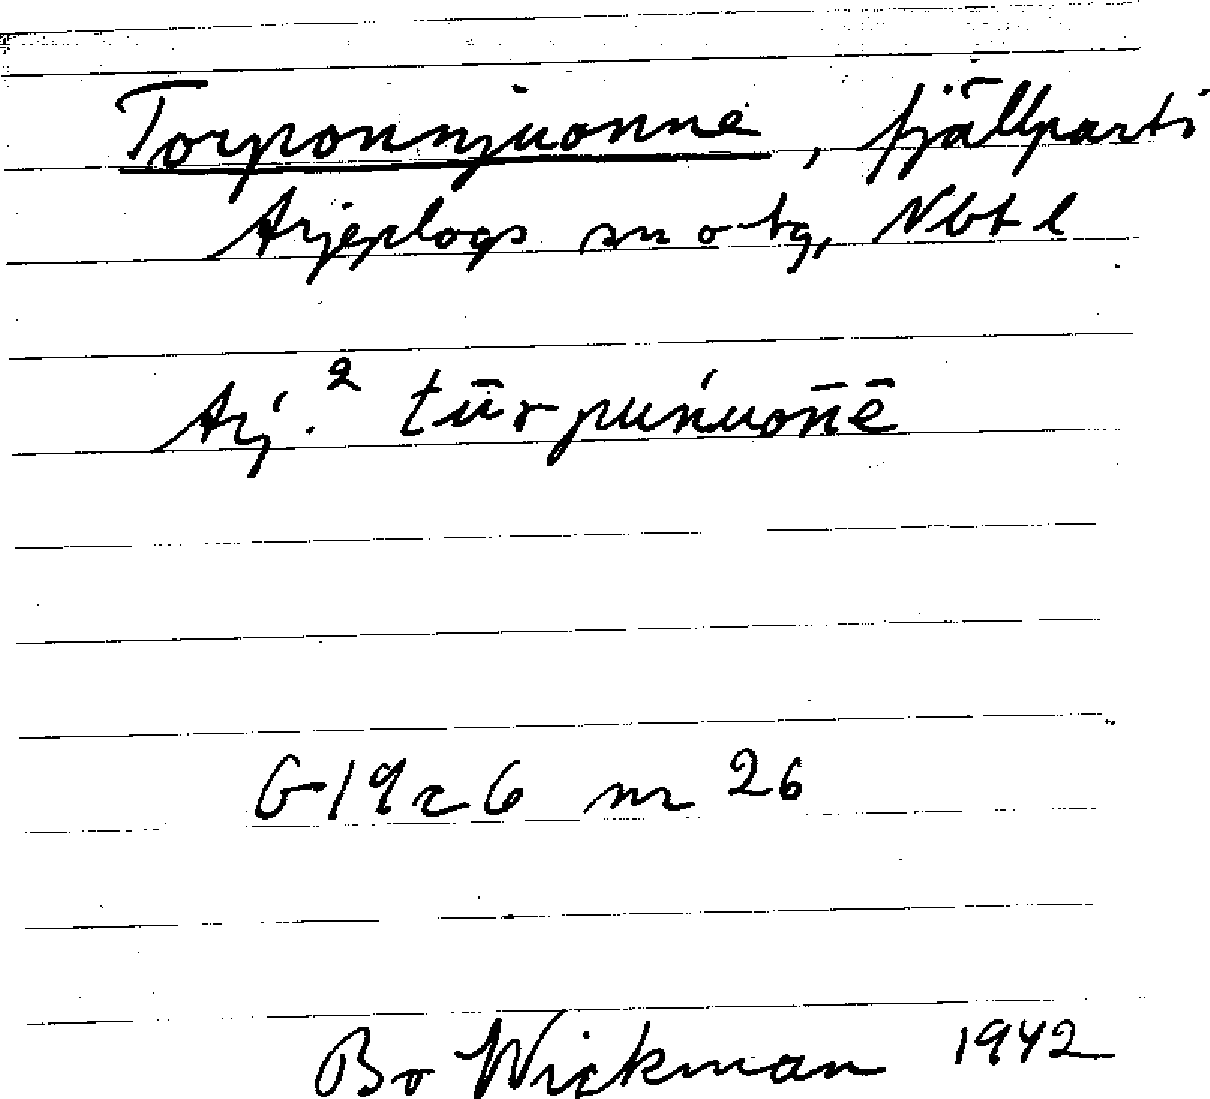 Torponnjuonne, fjällparti
Arjeplogs sn o tg, Nbt l
Arj.² tūrpuńuon̄ē
G19c6 nr 26
Bo Wickman 1942